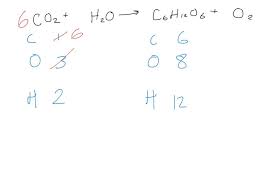 6CO₂ + H₂O → C₆H₁₂O₆ + O₂
C 1 6 C 6
O 3 O 8
H 2 H 12